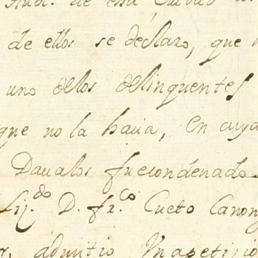 Aud.ª de esta Ciudad
de ellos se declaro, que
uno dellos delinquentes
que no la havia, en cuya
Davalos fue condenado
Liz.do D. fr.co Cueto Canon
admitio Una peti